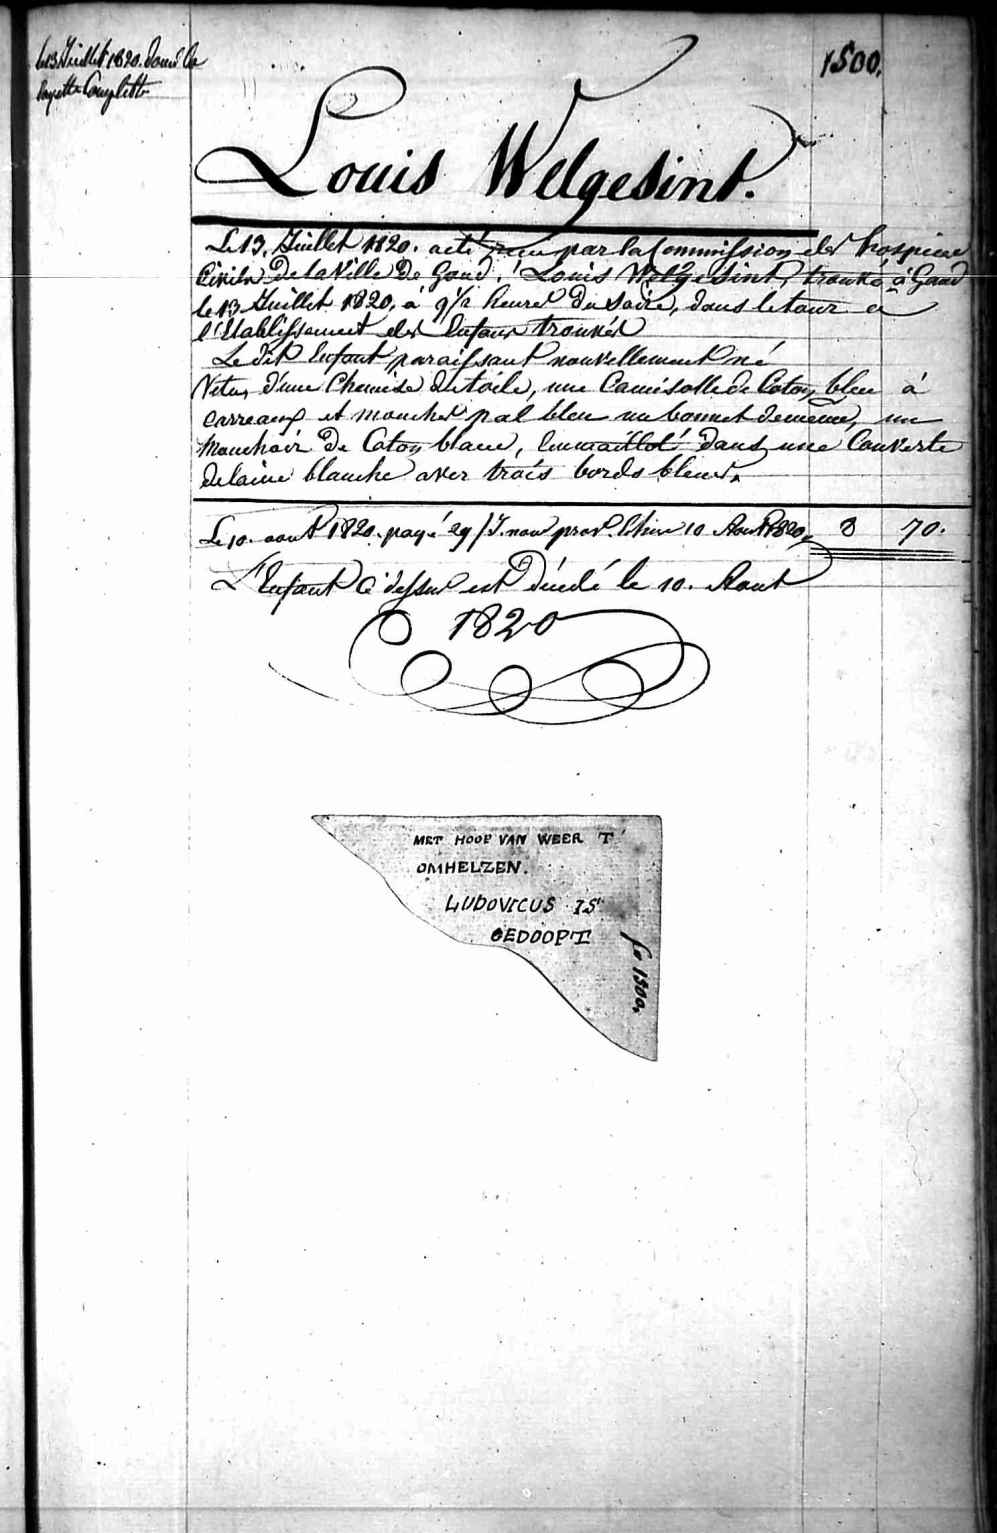 le 13 Juillet 1820. donné la
layette Complette
1500.
Louis Welgesint.
Le 13, Juillet 1820. a été reçu par la Commission des hospices
Civils De la Ville De Gand, Louis Welgesint, trouvé à Gand
le 13 Juillet 1820, à 9½ heures Du Soire, dans le tour a
l'Etablissement des Enfans trouvés
Le dit Enfant paraissant nouvellement né
Vetu, d'une Chemise de toile, une Camisolle de Coton bleu à
carreaux et mouches pal bleu un bonnet de meme, un
Mouchoir De Coton blanc, Emmaillotté dans une Couverte
de laine blanche avec trois bords bleus.
Le 10. aout 1820. payé 29/J. nour prov. 10 Aout 1820, 8 70.
L'Enfant Ci dessus est Décédé le 10. Aout
1820
MET HOOP VAN WEER 'T
OMHELZEN.
LUDOVICUS IS
GEDOOPT
fo 1500.